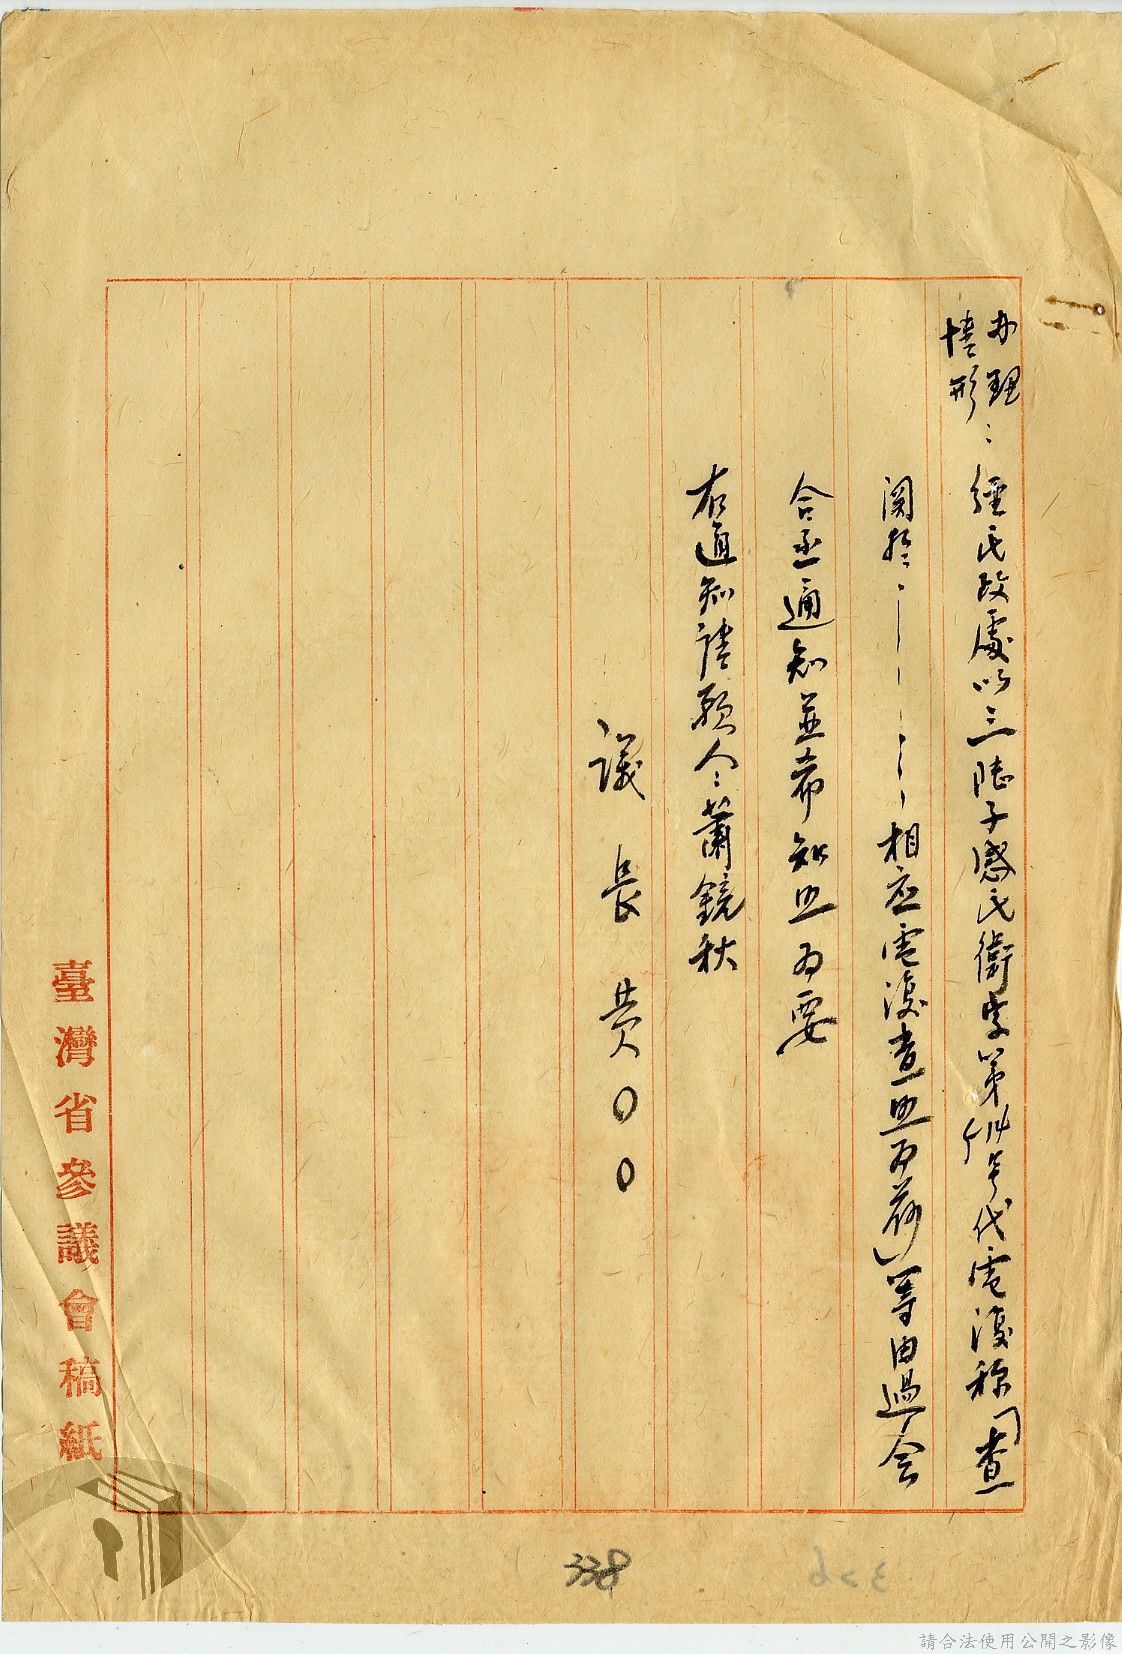 办理情形：經民政處以三陸子感民衛字第 号代電復称「查
関於－－－－－－相应電復查照为荷」等由過会
合亟通知並希知照为要
右通知請願人：蕭鏡秋
議長黄〇〇
臺灣省參議會稿紙
338
請合法使用公開之影像